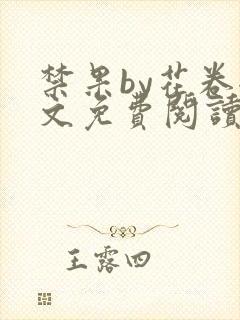 禁果by花卷
文免費閱讀
王露四